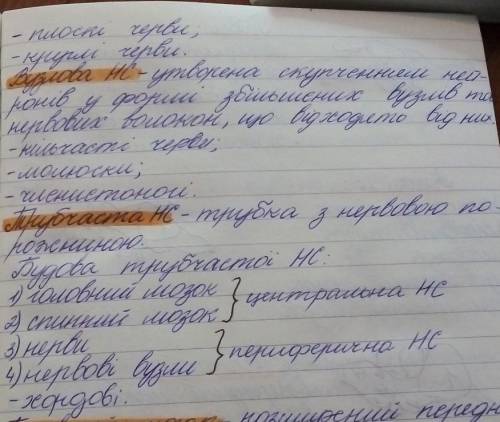 - плоскі черви;
- круглі черви.
Вузлова НС - утворена скупченням ней-
ронів у формі збільшених вузлів та
нервових волокон, що відходять від них.
- кільчасті черви;
- молюски;
- членистоногі.
Трубчаста НС - трубка з нервовою по-
рожниною.
Будова трубчастої НС:
1) головний мозок } центральна НС
2) спинний мозок
3) нерви } периферична НС
4) нервові вузли
- хордові.
розширений передн